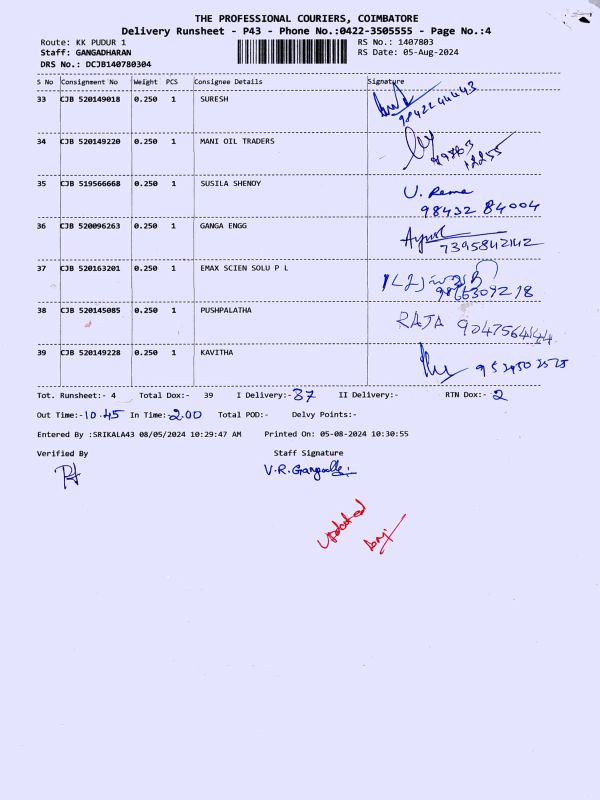 THE PROFESSIONAL COURIERS, COIMBATORE
Delivery Runsheet - P43 - Phone No.:0422-3505555 - Page No.:4
Route: KK PUDUR 1 RS No.: 1407803
Staff: GANGADHARAN RS Date: 05-Aug-2024
DRS No.: DCJB140780304
S No Consignment No Weight PCS Consignee Details Signature
33 CJB 520149018 0.250 1 SURESH 9842244443
34 CJB 520149220 0.250 1 MANI OIL TRADERS
35 CJB 519566668 0.250 1 SUSILA SHENOY U. Rema
98432 84004
36 CJB 520096263 0.250 1 GANGA ENGG
7395842142
37 CJB 520163201 0.250 1 EMAX SCIEN SOLU P L
38 CJB 520145085 0.250 1 PUSHPALATHA RAJA 9047564144
39 CJB 520149228 0.250 1 KAVITHA
Tot. Runsheet:- 4 Total Dox:- 39 I Delivery:- 37 II Delivery:- RTN Dox:- 2
Out Time:- 10.45 In Time:- 2.00 Total POD:- Delvy Points:-
Entered By :SRIKALA43 08/05/2024 10:29:47 AM Printed On: 05-08-2024 10:30:55
Verified By Staff Signature
V.R.
Updated